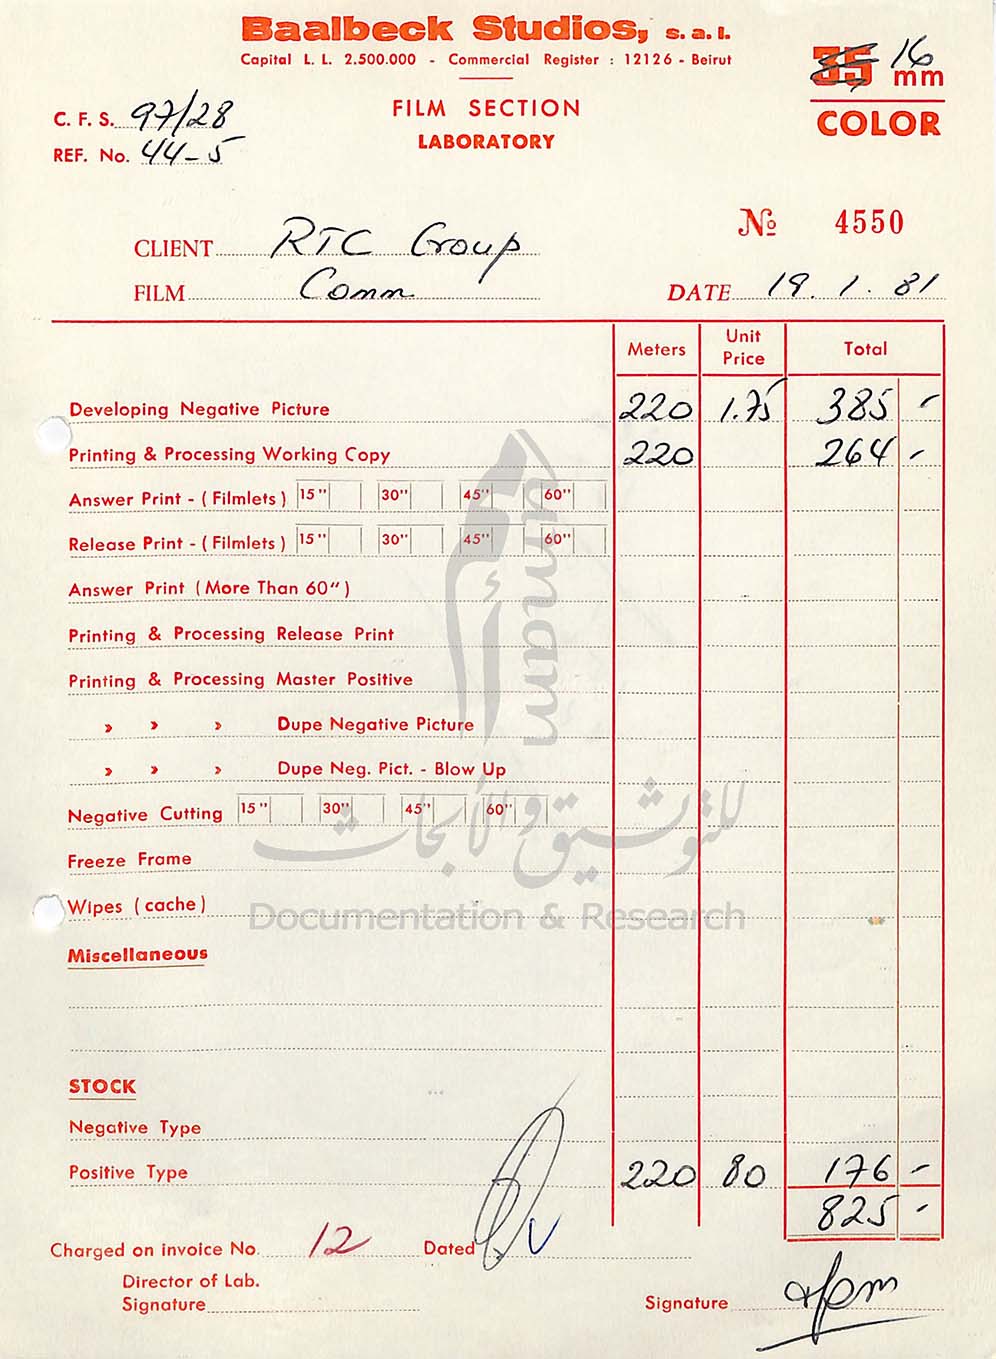 Baalbeck Studios, s.a.l.
Capital L. L. 2.500.000 - Commercial Register : 12126 - Beirut
35 16 mm
COLOR
FILM SECTION
LABORATORY
C. F. S. 97/28
REF. No. 44-5
№ 4550
CLIENT RTC Group
FILM Comm
DATE 19.1.81
Meters Unit Price Total
Developing Negative Picture 220 1.75 385 -
Printing & Processing Working Copy 220 264 -
Answer Print - ( Filmlets ) 15" 30" 45" 60"
Release Print - ( Filmlets ) 15" 30" 45" 60"
Answer Print ( More Than 60" )
Printing & Processing Release Print
Printing & Processing Master Positive
» » » Dupe Negative Picture
» » » Dupe Neg. Pict. - Blow Up
Negative Cutting 15" 30" 45" 60"
Freeze Frame
Wipes ( cache )
Miscellaneous
STOCK
Negative Type
Positive Type 220 80 176 -
825 -
Charged on invoice No. 12 Dated
Director of Lab.
Signature
Signature
umam
للتوثيق والأبحاث
Documentation & Research